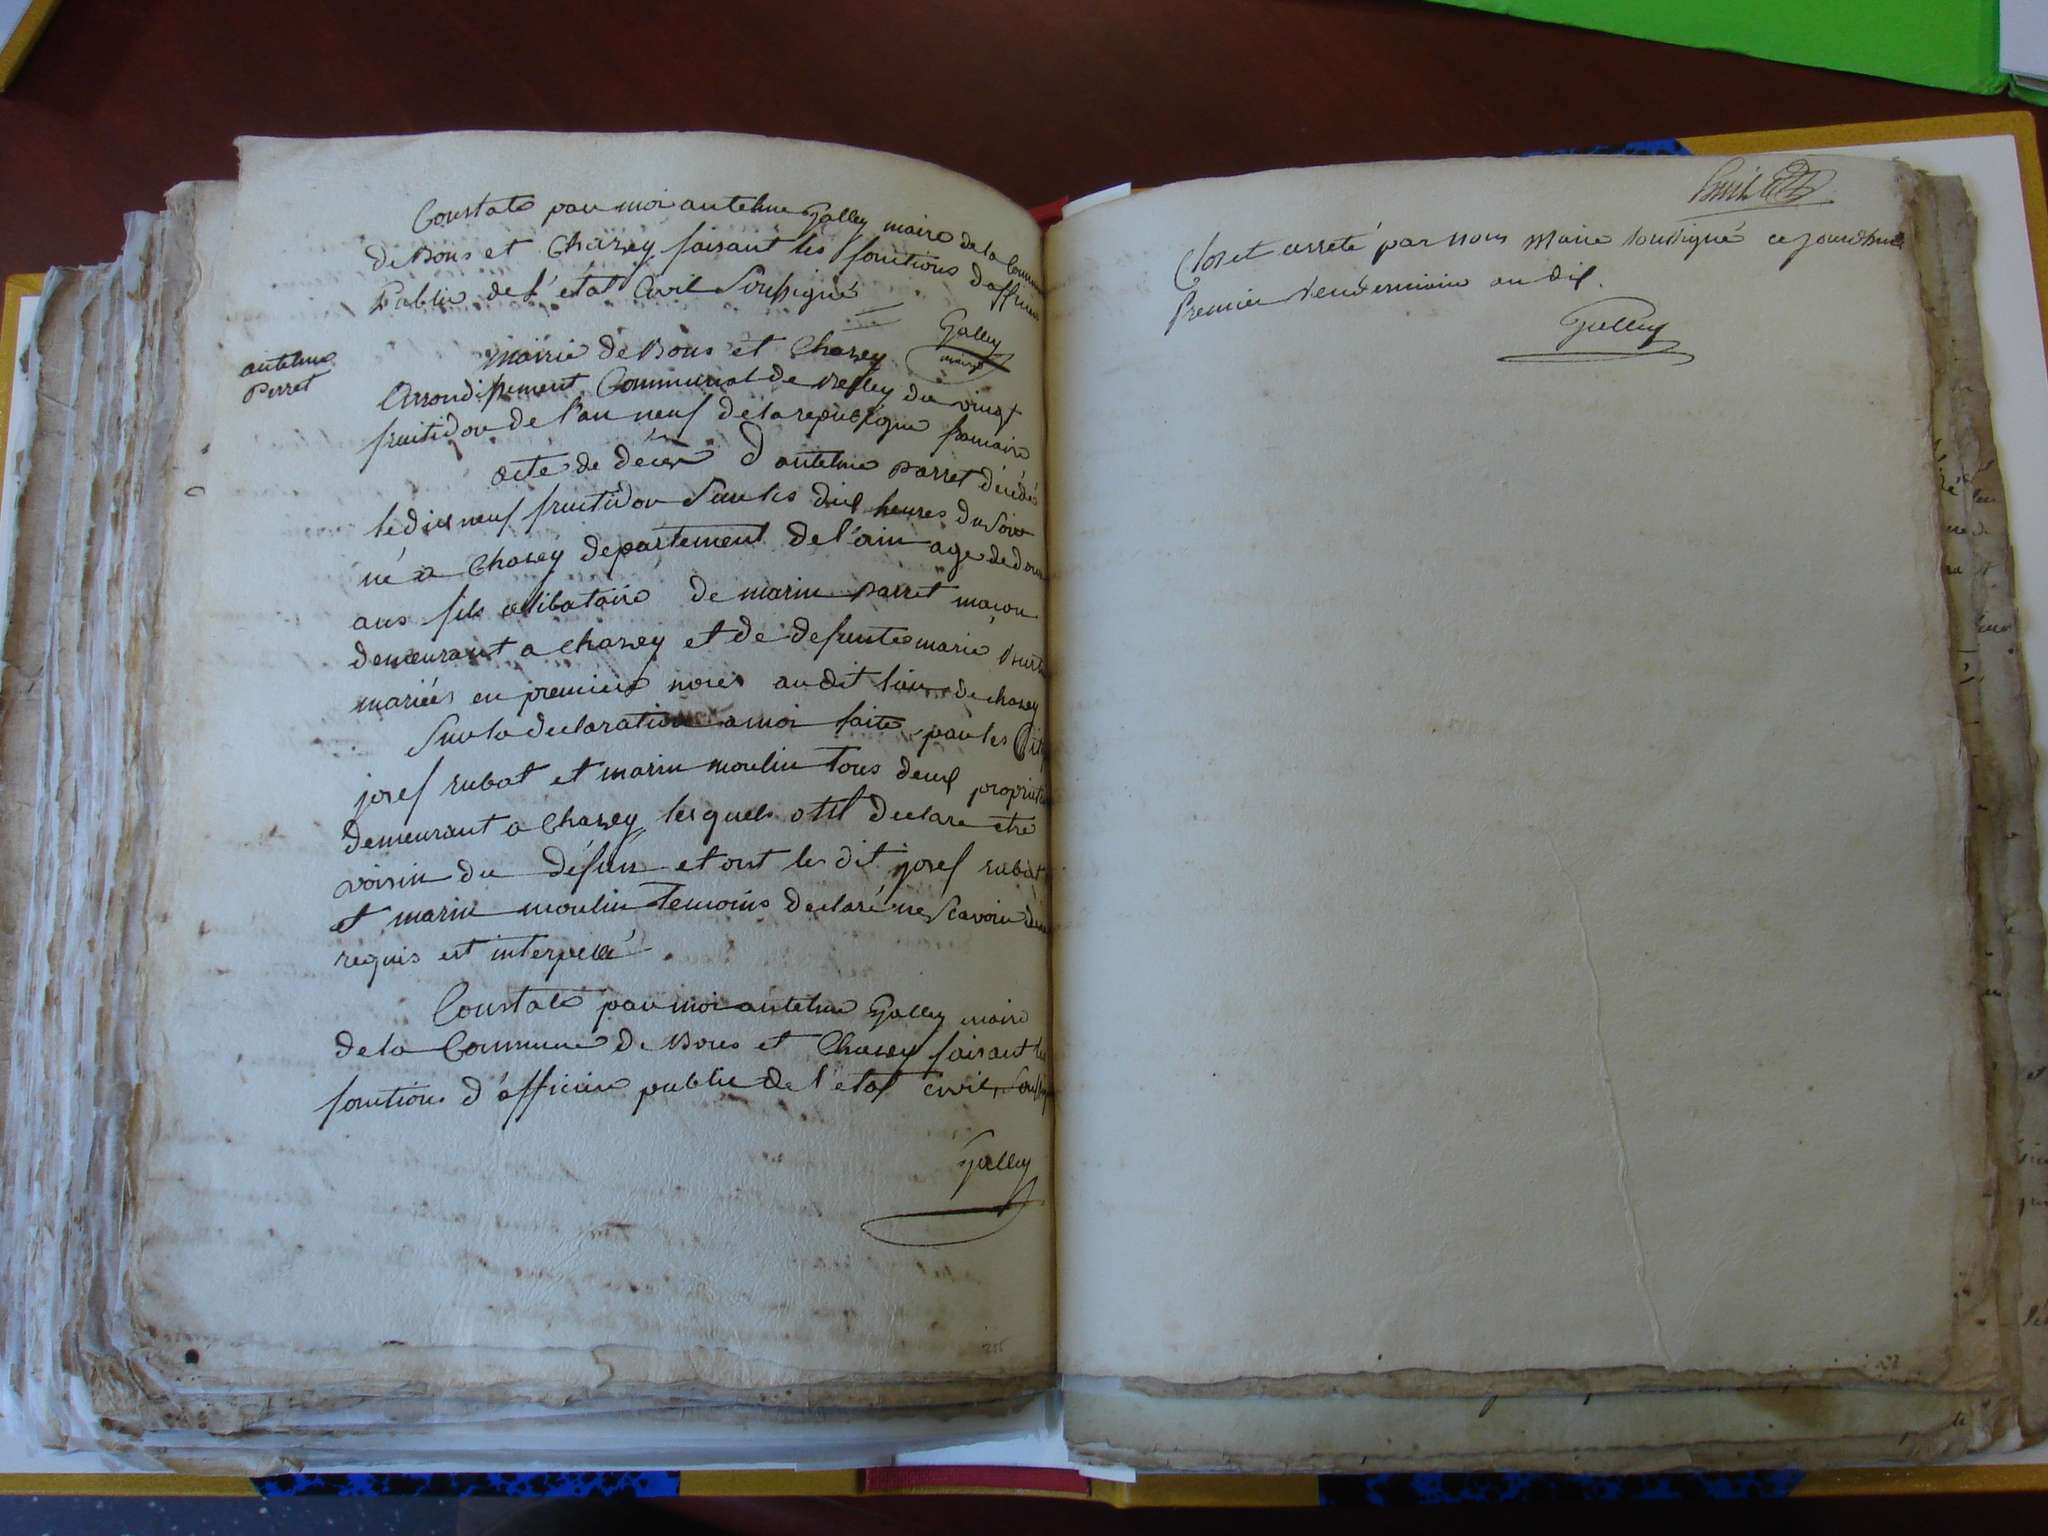 Constaté par moi antelme Galley maire de la Commune
de Bons et Chazey faisant les fonctions d'officier
Public de l'état Civil Soussigné
Galley
maire
antelme
Perret
Mairie de Bons et Chazey
Arrondissement Communal de Belley du vingt
fruitidor de l'an neuf de la republique francaire
acte de décer d'antelme parret décédé
le dix neuf fruitidor Sur les dix heures du Soir
né a Chazey departement de l'ain age de
ans fils celibataire de marin parret maçon
demeurant a chazey et de defunte marie
mariés en premiere noces audit lieu de chazey
Sur la declaration a moi faite par les
josef rubat et marin moulin tous deux
demeurant a Chazey lesquels ont declare etre
voisin du défun et ont les dit josef rubat
et marin moulin temoins declaré ne Scavoir
requis est interpellé
Constaté par moi antelme Galley maire
de la Commune de Bons et Chazey faisant les
fonctions d'officier public de l'etat civil
Galley
Clos et arreté par nous Maire soussigné ce jourdhuis
Premier vendemiaire an dix.
Galley